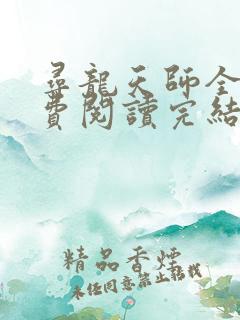 尋龍天師全
費閱讀完結
精品香煙
未經同意禁止轉載